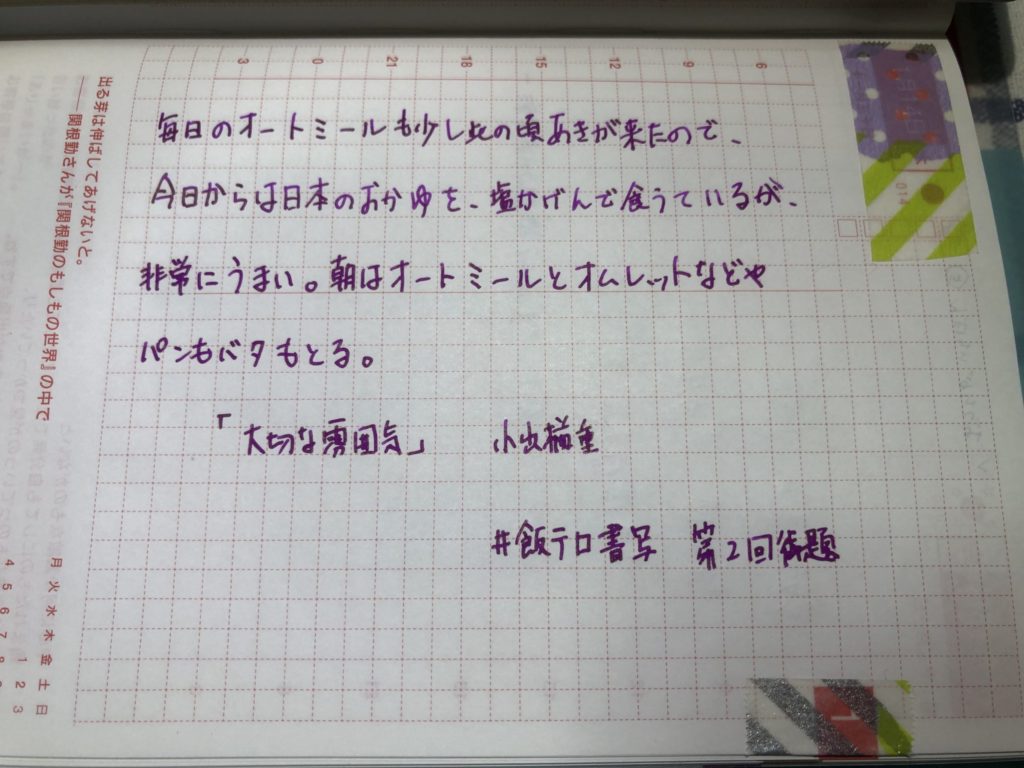 毎日のオートミールも少し此の頃あきが来たので、
今日からは日本のおかゆを、塩かげんで食うているが、
非常にうまい。朝はオートミールとオムレットなどや
パンもバタもとる。
「大切な雰囲気」 小出楢重
#飯テロ書写 第2回御題
出る芽は伸ばしてあげないと。
――関根勤さんが『関根勤のもしもの世界』の中で
3 0 21 18 15 12 9 6
月 火 水 木 金 土 日
1 2 3
4 5 6 7 8 9
014
1